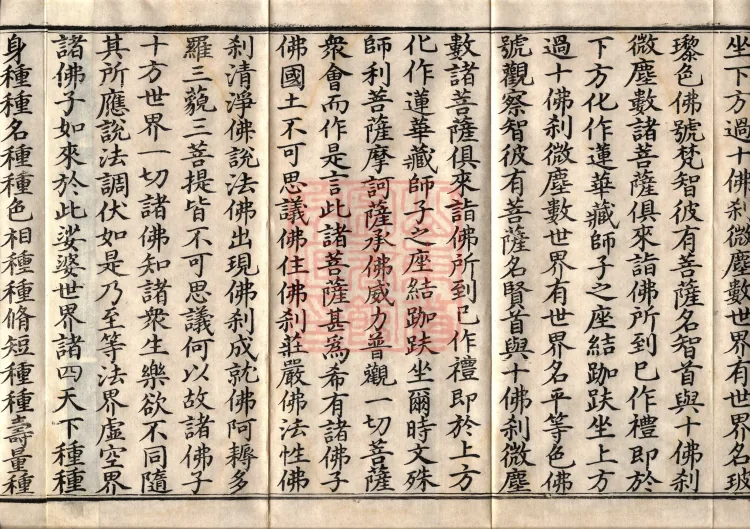 坐下方過十佛刹微塵數世界有世界名玻
瓈色佛號梵智彼有菩薩名智首與十佛刹
微塵數諸菩薩俱來詣佛所到已作禮即於
下方化作蓮華藏師子之座結跏趺坐上方
過十佛刹微塵數世界有世界名平等色佛
號觀察智彼有菩薩名賢首與十佛刹微塵
數諸菩薩俱來詣佛所到已作禮即於上方
化作蓮華藏師子之座結跏趺坐爾時文殊
師利菩薩摩訶薩承佛威力普觀一切菩薩
衆會而作是言此諸菩薩甚爲希有諸佛子
佛國土不可思議佛住佛刹莊嚴佛法性佛
刹清淨佛說法佛出現佛刹成就佛阿耨多
羅三藐三菩提皆不可思議何以故諸佛子
十方世界一切諸佛知諸衆生樂欲不同隨
其所應說法調伏如是乃至等法界虛空界
諸佛子如來於此娑婆世界諸四天下種種
身種種名種種色相種種脩短種種壽量種